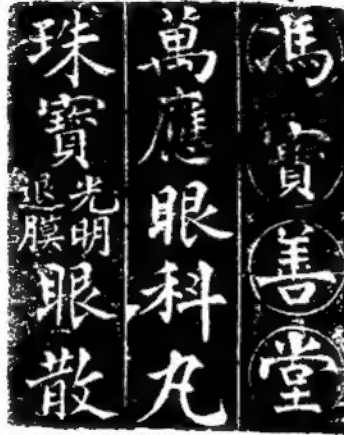 馮寳善堂
萬應眼科丸
珠寳光明退膜眼散